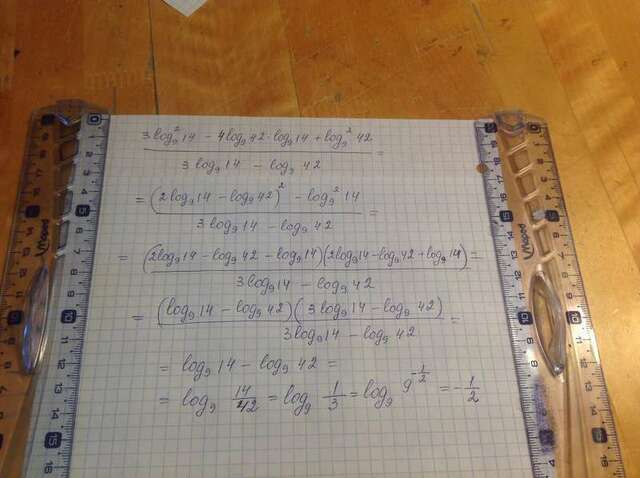 3log₉²14 − 4log₉42·log₉14 + log₉²42 / 3log₉14 − log₉42 =
= (2log₉14 − log₉42)² − log₉²14 / 3log₉14 − log₉42 =
= (2log₉14 − log₉42 − log₉14)(2log₉14 − log₉42 + log₉14) / 3log₉14 − log₉42 =
= (log₉14 − log₉42)(3log₉14 − log₉42) / 3log₉14 − log₉42 =
= log₉14 − log₉42 =
= log₉ 14/42 = log₉ 1/3 = log₉ 9^(-1/2) = -1/2
Maped
Maped